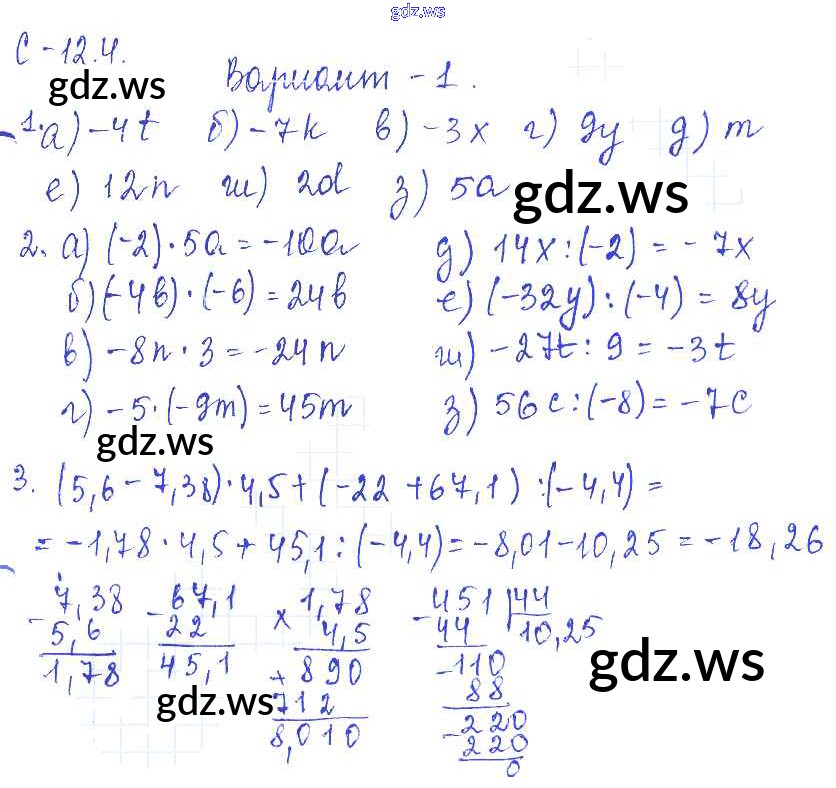 gdz.ws
С-12.4.
gdz.ws
Вариант - 1.
1. а) -4t б) -7k в) -3x г) 9y д) m
е) 12n ж) 2d з) 5a
gdz.ws
2. а) (-2)·5a = -10a д) 14x:(-2) = -7x
б) (-4b)·(-6) = 24b е) (-32y):(-4) = 8y
в) -8n·3 = -24n ж) -27t:9 = -3t
г) -5·(-9m) = 45m з) 56c:(-8) = -7c
gdz.ws
3. (5,6-7,38)·4,5+(-22+67,1):(-4,4)=
= -1,78·4,5+45,1:(-4,4)= -8,01-10,25 = -18,26
7,38 67,1 1,78 451 44
- 5,6 - 22 × 4,5 - 44 10,25
1,78 45,1 + 890 -110
gdz.ws
712 88
gdz.ws
8,010 -220
220
0